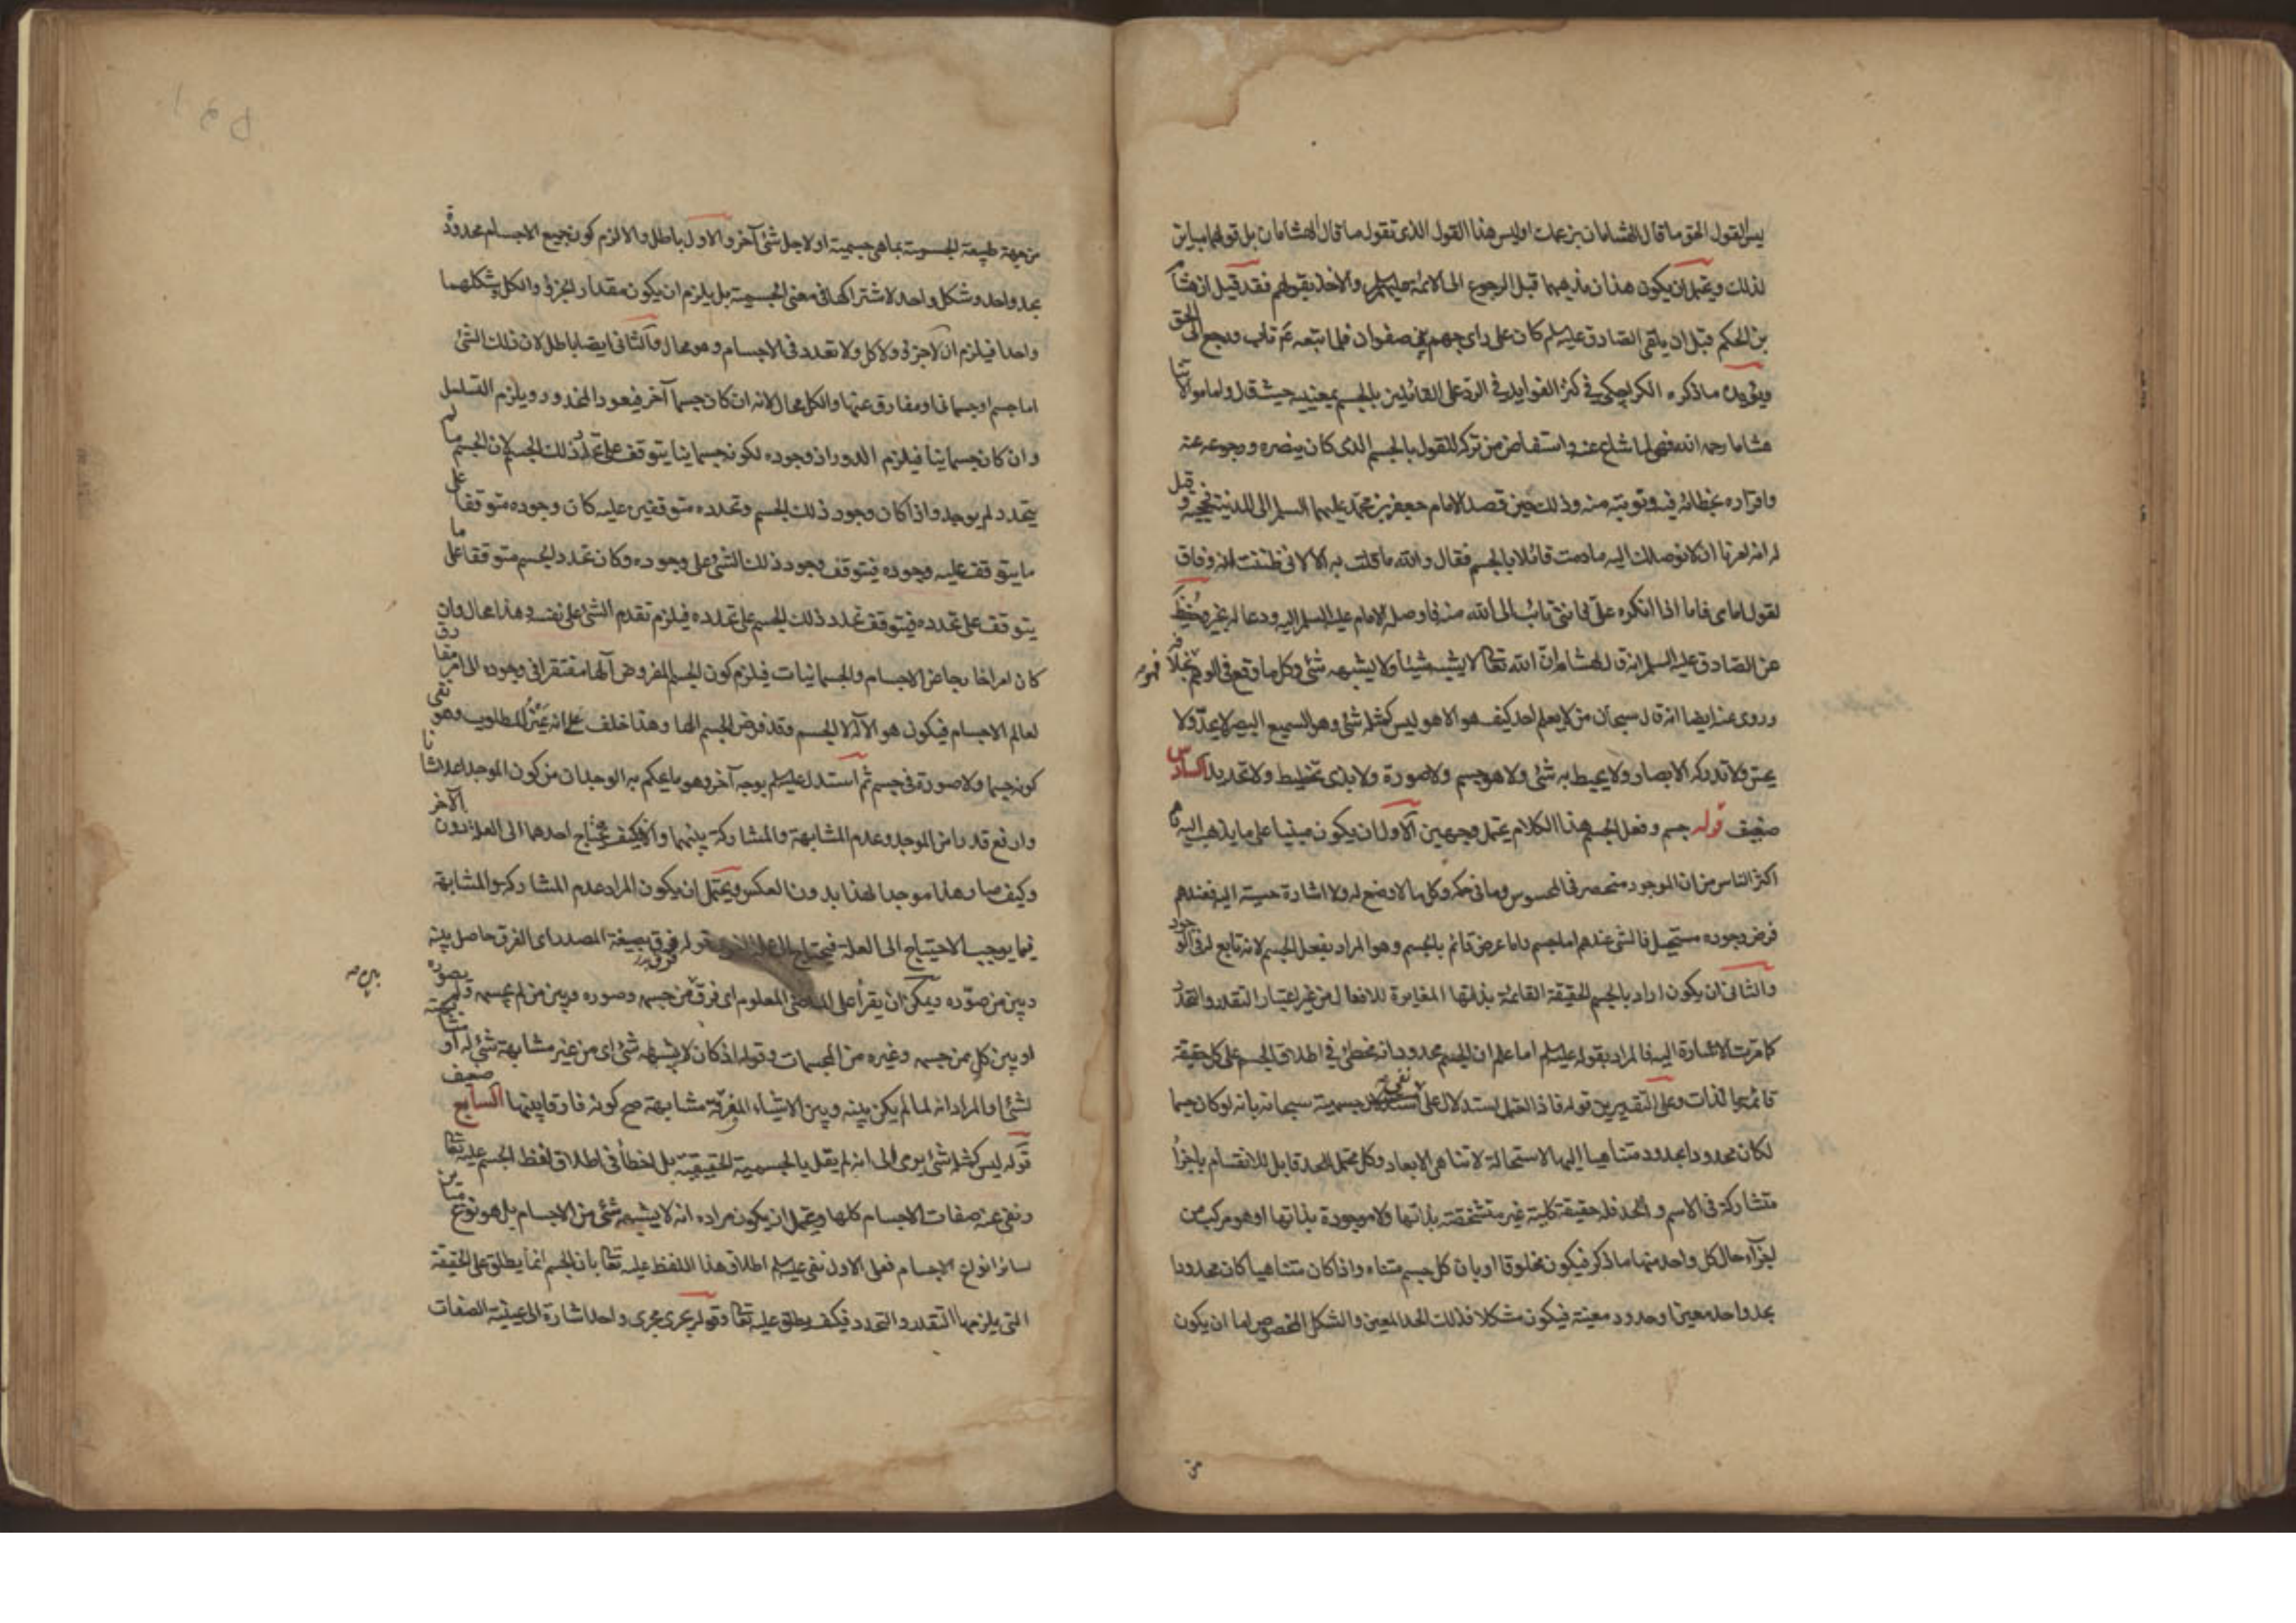 ليس القول الحق ما قال الهشامان بزعمك او ليس هذا القول الذى تقول ما قال الهشامان بل قولهما مباين
لذلك ويحتمل ان يكون هذان مذهبهما قبل الرجوع الى الائمة عليهم السلم والاخذ بقولهم فقد قيل ان هشام
بن الحكم قبل ان يلقى الصادق عليه السلم كان على راى جهم بن صفوان فلما تبعه ع تاب ورجع الى الحق
ويؤيده ما ذكره الكراجكى فى كنز الفوايد فى الرد على القائلين بالجسم بمعنييه حيث قال واما موالاتنا
هشاما رحمه الله فهى لما شاع عنه واستفاض من تركه للقول بالجسم الذى كان ينصره ورجوعه عنه
واقراره بخطائه فيه وتوبته منه وذلك حين قصد الامام جعفر بن محمد عليهما السلم الى المدينة فحجبه وقيل
له انه امرنا ان لا نوصلك اليه ما دمت قائلا بالجسم فقال والله ما قلت به الا لانى ظننت انه وفاق
لقول امامى فاما اذا انكره على فاننى تائب الى الله منه فاوصله الامام عليه السلم اليه ودعا له بخير وحفظ
عن الصادق عليه السلم انه قال لهشام ان الله تعالى لا يشبه شيئا ولا يشبهه شئ وكل ما وقع فى الوهم فهو بخلافه
وروى عنه ايضا انه قال سبحان من لا يعلم احد كيف هو الا هو ليس كمثله شئ وهو السميع البصير لا يحد ولا
يحس ولا تدركه الابصار ولا يحيط به شئ ولا هو جسم ولا صورة ولا بذى تخطيط ولا تحديد السادس
ضعيف قوله جسم وفعل الجسم هذا الكلام يحتمل وجهين الاول ان يكون مبنيا على ما يذهب اليه
اكثر الناس من ان الموجود منحصر فى المحسوس وما فى حكمه وكل ما لا وضع له ولا اشارة حسية اليه فعندهم
فرض وجوده مستحيل فالشئ عندهم اما جسم واما عرض قائم بالجسم وهو المراد بفعل الجسم لانه تابع له فى الوجود
والثانى ان يكون اراد بالجسم الحقيقة القائمة بذاتها المغايرة للافعال من غير اعتبار التقدر والتحدد
كما مرت الاشارة اليه فالمراد بقوله عليه السلم اما علم ان الجسم محدود انه مخطئ فى اطلاق الجسم على كل حقيقة
قائمة بالذات وعلى التقديرين قوله فاذا احتمل استدلال على نفى جسميته سبحانه بانه لو كان جسما
لكان محدودا بحدود متناهيا اليها لاستحالة لا تناهى الابعاد وكل محتمل للحد قابل للانقسام باجزاء
متشاركة فى الاسم والحد فله حقيقة كلية غير متشخصة بذاتها ولا موجودة بذاتها او هو مركب من
اجزاء حال كل واحد منها ما ذكر فيكون مخلوقا او بان كل جسم متناه واذا كان متناهيا كان محدودا
بحد واحد معين او حدود معينة فيكون مشكلا فذلك الحد المعين والشكل المخصوص اما ان يكون
من
من جهة طبيعة الجسمية بما هى جسمية او لاجل شئ آخر والاول باطل والا لزم كون جميع الاجسام محدودة
بحد واحد وشكل واحد لاشتراكها فى معنى الجسمية بل يلزم ان يكون مقدار الجزء والكل وشكلهما
واحدا فيلزم ان لا جزء ولا كل ولا تعدد فى الاجسام وهو محال والثانى ايضا باطل لان ذلك الشئ
اما جسم او جسمانى او مفارق عنها والكل محال لانه ان كان جسما آخر فيعود المحذور ويلزم التسلسل
وان كان جسمانيا فيلزم الدور اذ وجوده لكونه جسمانيا يتوقف على تحدد ذلك الجسم لان الجسم ما لم
يتحدد لم يوجد واذا كان وجود ذلك الجسم وتحدده متوقفين عليه كان وجوده متوقفا على
ما يتوقف عليه وجوده فيتوقف وجود ذلك الشئ على وجوده وكان تحدد الجسم متوقفا على ما
يتوقف على تحدده فيتوقف تحدد ذلك الجسم على تحدده فيلزم تقدم الشئ على نفسه وهذا محال وان
كان امرا خارجا عن الاجسام والجسمانيات فيلزم كون الجسم المفروض الها مفتقرا فى وجوده الى امر مفارق
لعالم الاجسام فيكون هو الاله لا الجسم وقد فرض الجسم الها وهذا خلف على انه عين المطلوب وهو نفى
كونه جسما ولا صورة فى جسم ثم استدل عليه السلم بوجه آخر وهو ما يحكم به الوجدان من كون الموجد اعلا شانا
وارفع قدرا من الموجد وعدم المشابهة والمشاركة بينهما والا فكيف يحتاج احدهما الى العلة دون الآخر
وكيف صار هذا موجدا لهذا بدون العكس ويحتمل ان يكون المراد عدم المشاركة والمشابهة
فيما يوجب الاحتياج الى العلة فيحتاج الى علة اخرى قوله فرق بصيغة المصدر اى الفرق حاصل بينه
وبين من صوره ويمكن ان يقرأ على الماضى المعلوم اى فرق بين من جسمه وصوره وبين من لم يجسمه ولم يصوره
او بين كل ممن جسمه وغيره من المجسمات وقوله اذ كان لا يشبهه شئ اى من غير مشابهة شئ له او مشابهته
لشئ او المراد انه لما لم يكن بينه وبين الاشياء المفرقة مشابهة صح كونه فارقا بينها السابع ضعيف
قوله ليس كمثله شئ يومى الى انه لم يقل بالجسمية الحقيقية بل اخطأ فى اطلاق لفظ الجسم عليه تعالى
ونفى عنه صفات الاجسام كلها ويحتمل ان يكون مراده انه لا يشبهه شئ من الاجسام بل هو نوع مباين
لسائر انواع الاجسام فعلى الاول نفى عليه السلم اطلاق هذا اللفظ عليه تعالى بان الجسم انما يطلق على الحقيقة
التى يلزمها التقدر والتحدد فكيف يطلق عليه تعالى وقوله يجرى مجرى واحد اشارة الى عينية الصفات